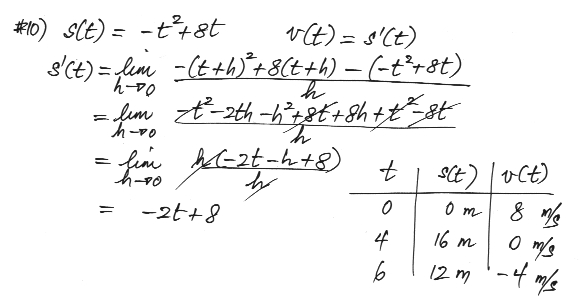 #10) s(t) = -t²+8t   v(t) = s'(t)
s'(t) = lim h→0 (-(t+h)²+8(t+h) - (-t²+8t))/h
= lim h→0 (-t²-2th-h²+8t+8h+t²-8t)/h
= lim h→0 h(-2t-h+8)/h
= -2t+8
t | s(t) | v(t)
0 | 0 m | 8 m/s
4 | 16 m | 0 m/s
6 | 12 m | -4 m/s